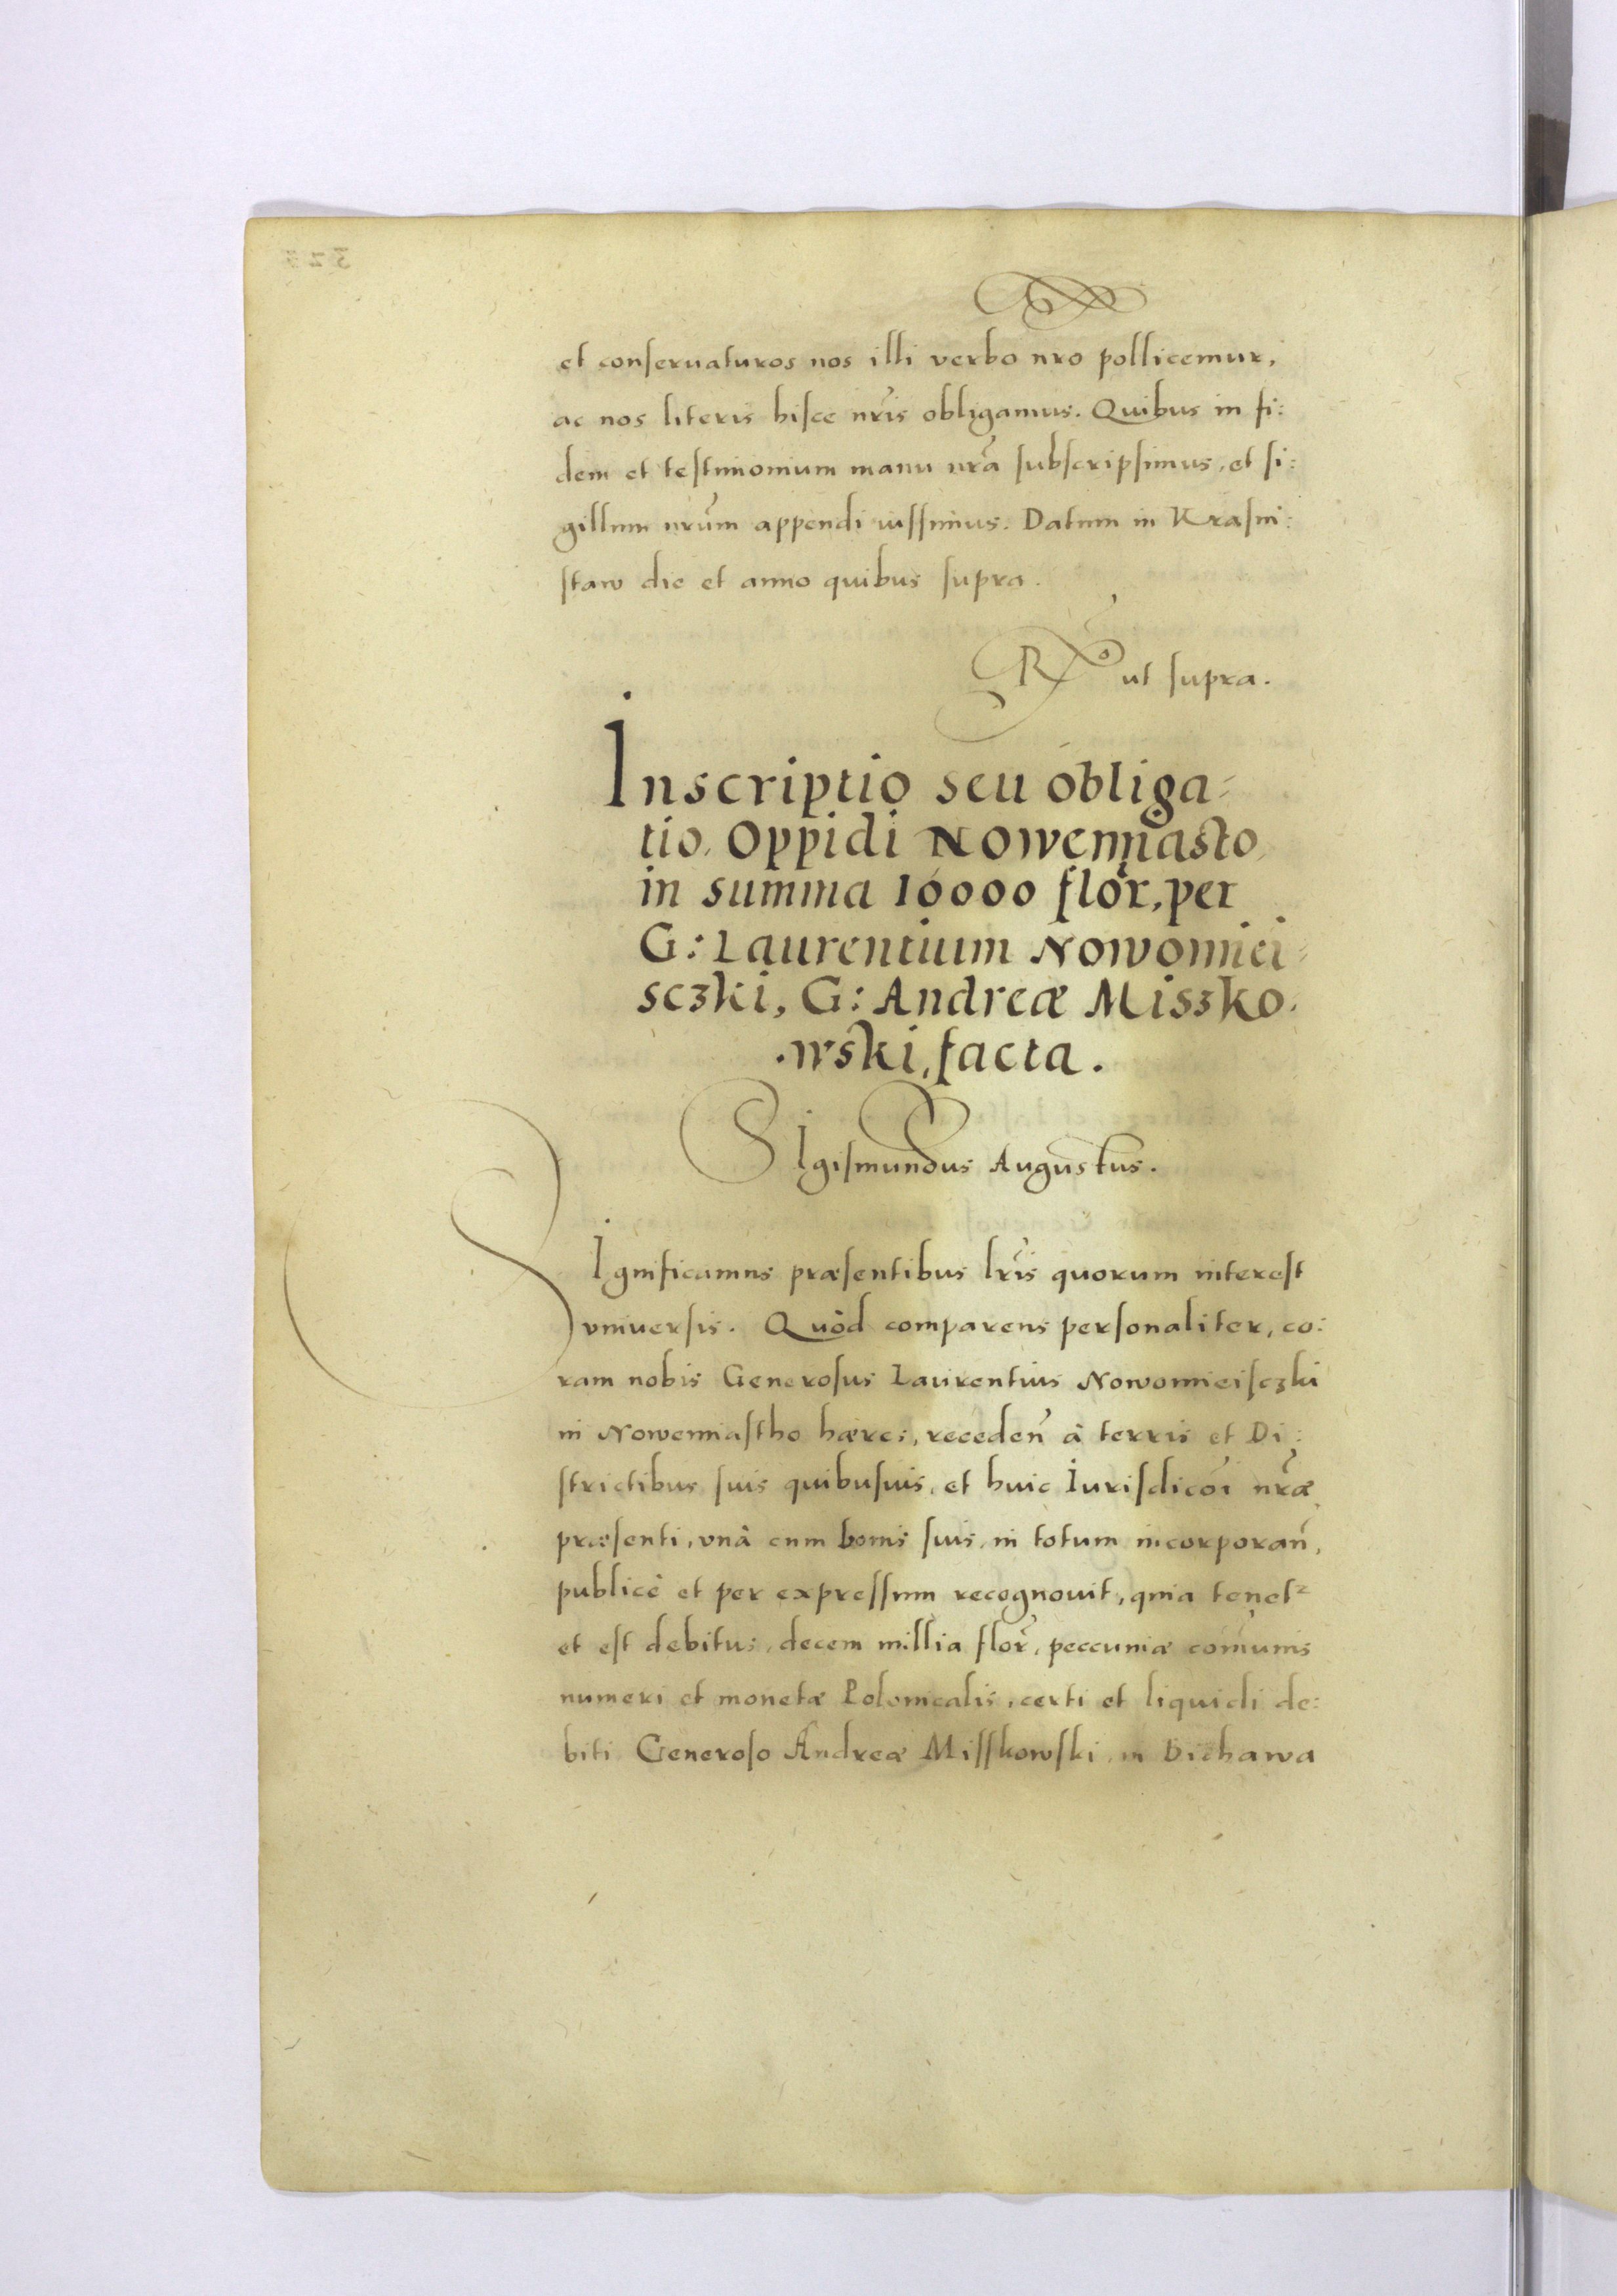 et conseruaturos nos illi verbo nro pollicemur,
ac nos literis hisce nris obligamus. Quibus in fi:
dem et testimonium manu nrã subscripsimus, et si:
gillum nrũm appendi iussimus. Datum in Krasni:
staw die et anno quibus supra.
Rᵒ ut supra.
Inscriptio seu obliga=
tio, Oppidi Nowemiasto,
in summa 10000 flor̃, per
G: Laurentium Nowomiei=
sczki, G: Andreæ Miszko.
.wski, facta.
SIgismundus Augustus.
SIgnificamus præsentibus lr̃is quorum interest
vniuersis. Quòd comparens personaliter, co:
ram nobis Generosus Laurentius Nowomieisczki
in Nowemiastho hæres, receden̄ à terris et Di:
strictibus suis quibusuis, et huic Iurisdicõi nr̃æ
præsenti, vnà cum bonis suis, in totum incorporan̄,
publicè et per expressum recognouit, quia tenet²
et est debitus, decem millia flor̃, peccuniæ com̃unis
numeri et monetæ Polonicalis, certi et liquidi de:
biti Generoso Andreæ Misskowski, in Bichawa